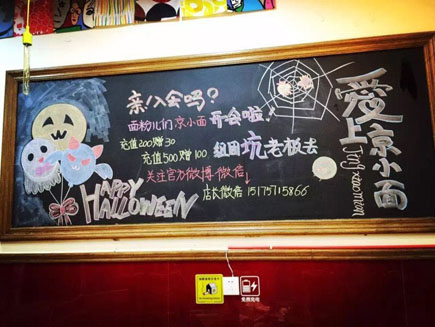 亲!入会吗?
面粉儿们 京小面 开会啦!
充值200赠30
充值500赠100
组团坑老板去
关注官方微博·微信
店长微信 15175715866
HAPPY
HALLOWEEN
爱上京小面
Jingxiaomian
免费充电